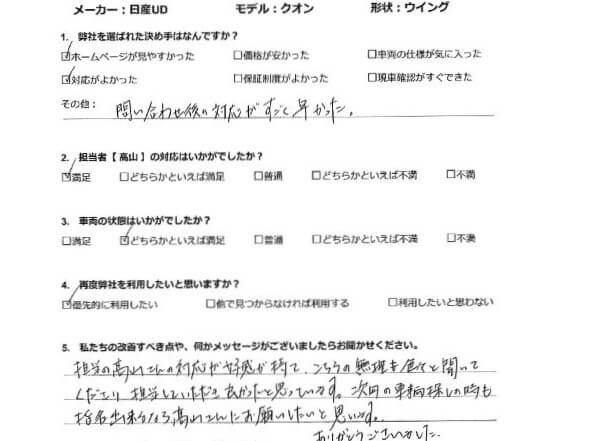 メーカー：日産UD モデル：クオン 形状：ウイング
1. 弊社を選ばれた決め手はなんですか？
☑ホームページが見やすかった □価格が安かった □車両の仕様が気に入った
☑対応がよかった □保証制度がよかった □現車確認がすぐできた
その他： 問い合わせ後の対応がすごく早かった。
2. 担当者【 高山 】の対応はいかがでしたか？
☑満足 □どちらかといえば満足 □普通 □どちらかといえば不満 □不満
3. 車両の状態はいかがでしたか？
□満足 ☑どちらかといえば満足 □普通 □どちらかといえば不満 □不満
4. 再度弊社を利用したいと思いますか？
☑優先的に利用したい □他で見つからなければ利用する □利用したいと思わない
5. 私たちの改善すべき点や、何かメッセージがございましたらお聞かせください。
担当の高山さんの対応が好感が持て、こちらの無理も色々と聞いて
くださり 担当していただき良かったと思っています。次回の車輌探しの時も
指名出来るなら高山さんにお願いしたいと思います。
ありがとうございました。